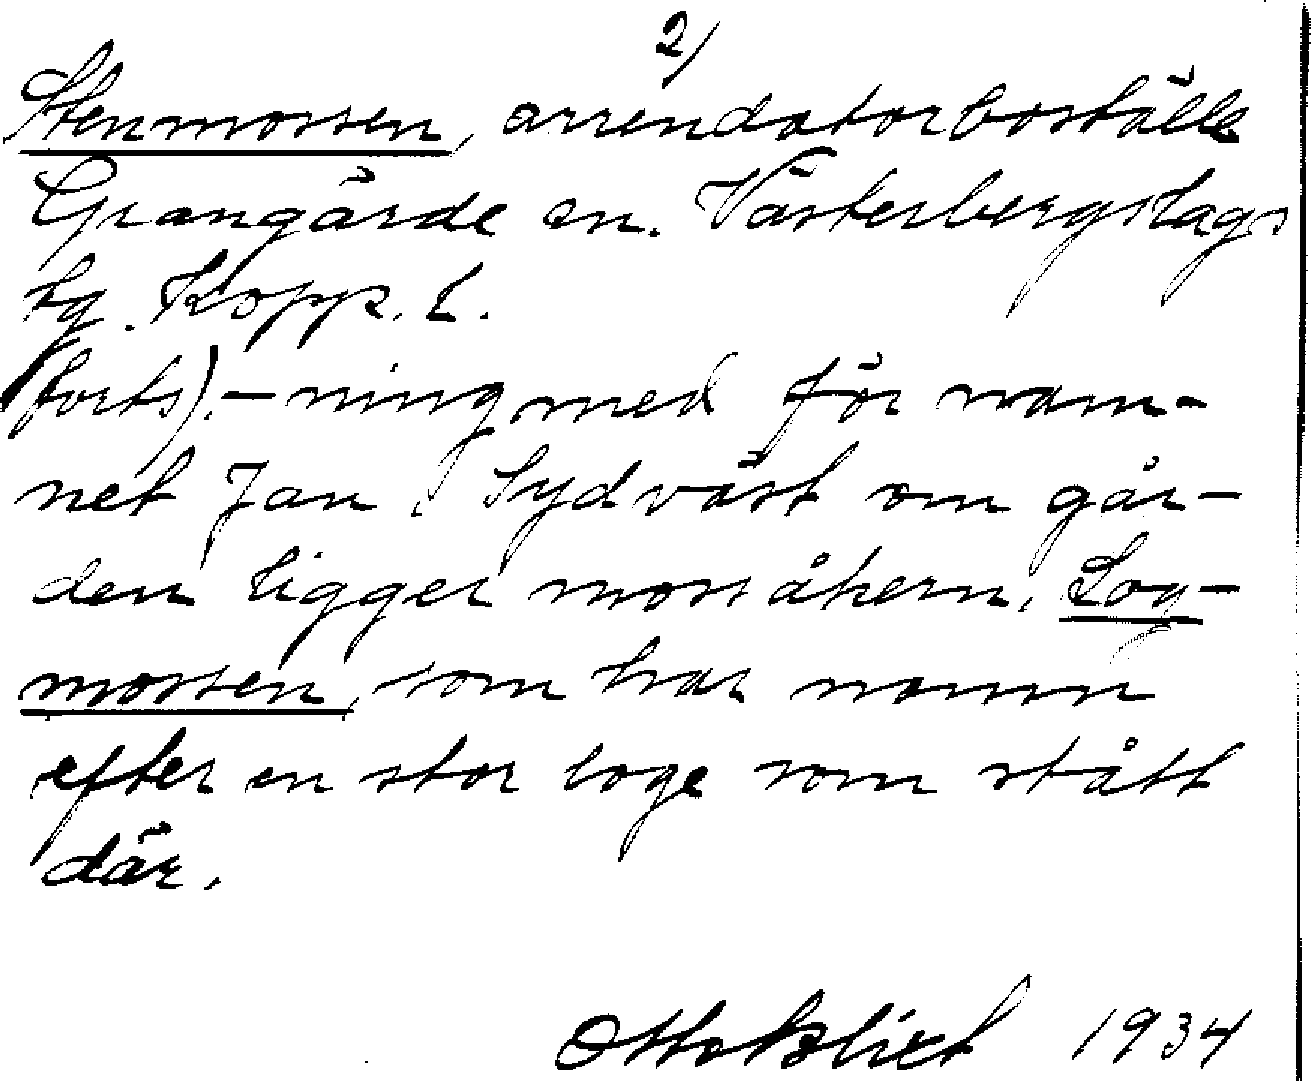 2/
Stenmossen, arrendatorboställe
Grangärde sn. Västerbergslags
tg. Kopp. L.
forts).- ning med för nam-
net Jan. Sydväst om går-
den ligger mossåkern, Log-
mossen, som har namn
efter en stor loge som stått
där.
Otto Blixt 1934